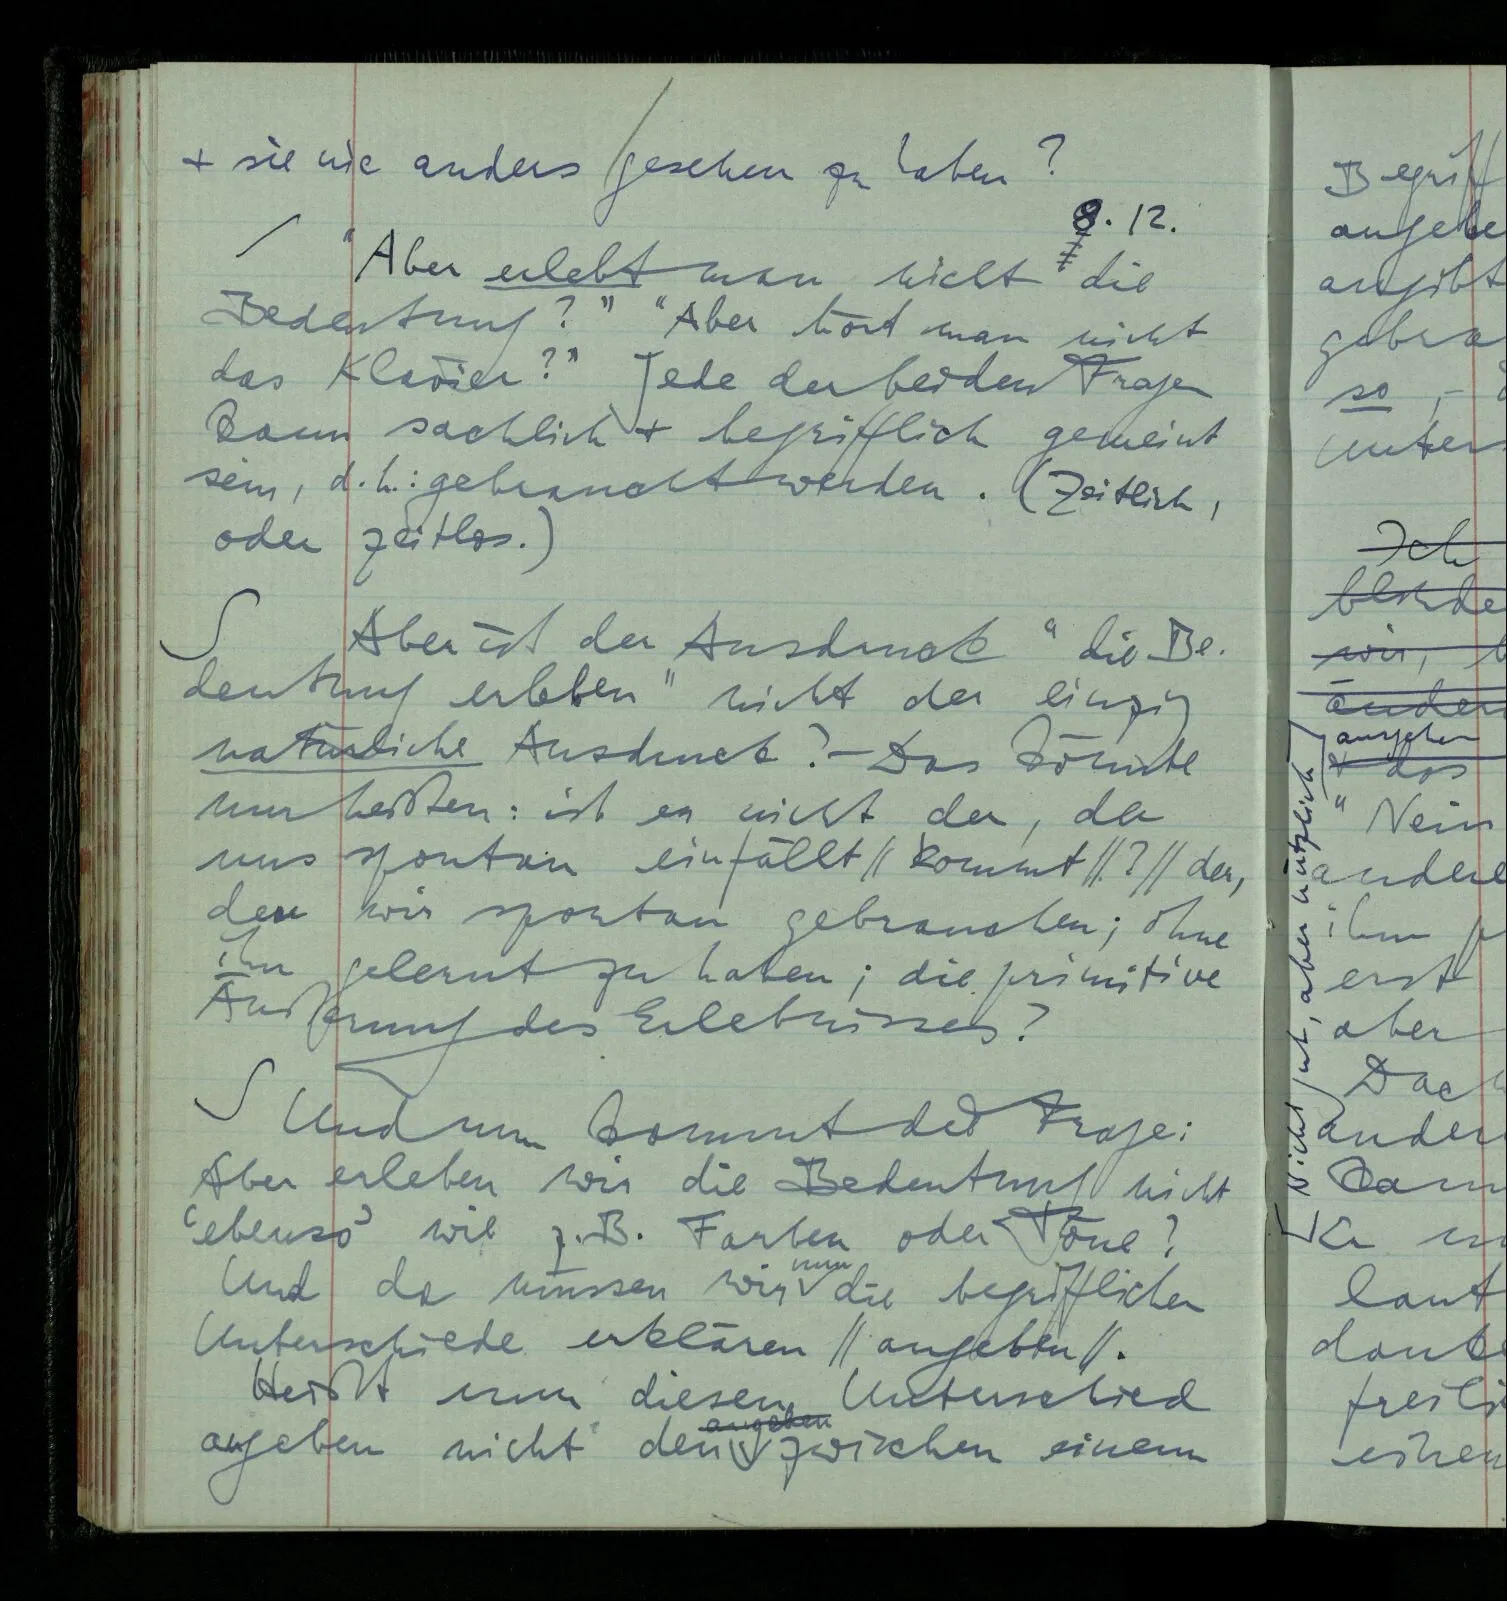 + sie nie anders gesehen zu haben?
8. 12.
"Aber erlebt man nicht die
Bedeutung?" "Aber hört man nicht
das Klavier?" Jede der beiden Fragen
kann sachlich + begrifflich gemeint
sein, d.h.: gebraucht werden. (Zeitlich,
oder zeitlos.)
Aber ist der Ausdruck "die Be-
deutung erleben" nicht der einzig
natürliche Ausdruck? – Das könnte
nur heißen: ist er nicht der, der
uns spontan einfällt // kommt //? // der,
den wir spontan gebrauchen; ohne
ihn gelernt zu haben; die primitive
Äußerung des Erlebnisses?
Und nun kommt die Frage:
Aber erleben wir die Bedeutung nicht
'ebenso' wie z.B. Farben oder Töne?
Und da müssen wir nun die begrifflichen
Unterschiede erklären // angeben //.
Heißt nun diesen Unterschied
angeben nicht den angeben zwischen einem
Begriff
angebe
angibt
gebra
so, –
Unters
Ich
blonde
wir,
änder
ansehen
+ das
"Nein
andere
ihm
erst
aber
Dach
ander
kann
laut
danke
freili
einen
[Nicht gut, aber nützlich]